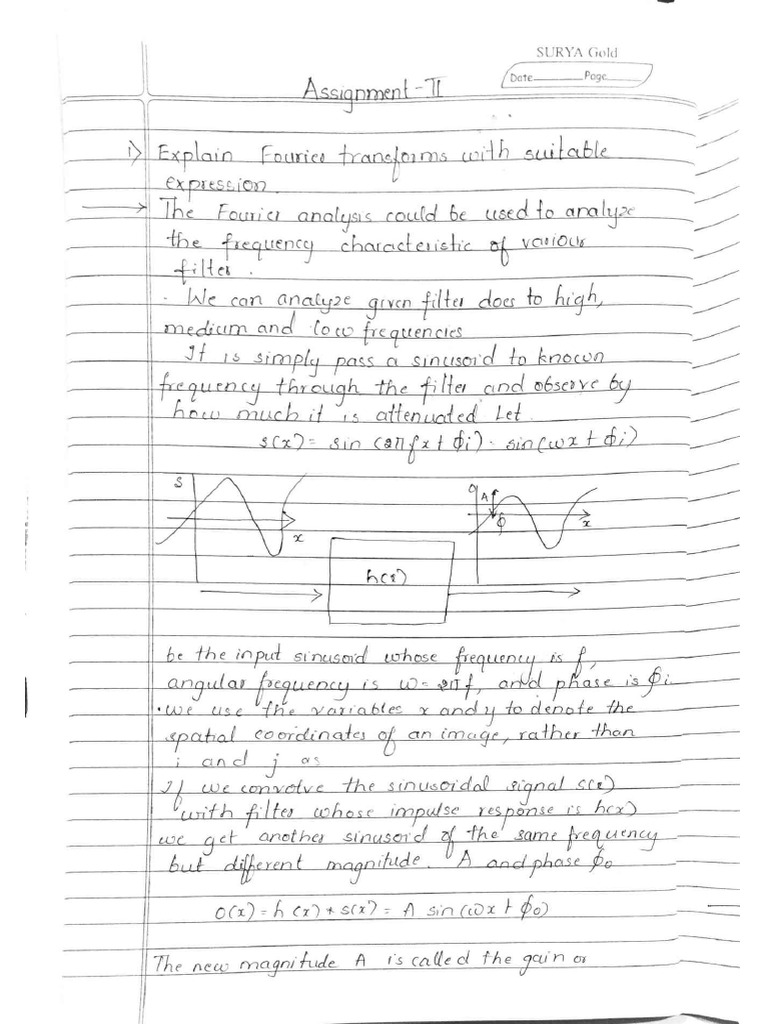 SURYA Gold
Date Page
Assignment - II
i) Explain Fourier transforms with suitable
expression.
→ The Fourier analysis could be used to analyze
the frequency characteristic of various
filter.
. We can analyze given filter does to high,
medium and low frequencies
It is simply pass a sinusoid to known
frequency through the filter and observe by
how much it is attenuated Let.
s(x) = sin (2πfx + ϕi) · sin(ωx + ϕi)
S
x
o
A
ϕ
x
h(x)
be the input sinusoid whose frequency is f,
angular frequency is ω = 2πf, and phase is ϕi
• we use the variables x and y to denote the
spatial coordinates of an image, rather than
i and j as
If we convolve the sinusoidal signal s(x)
with filter whose impulse response is h(x)
we get another sinusoid of the same frequency
but different magnitude. A and phase ϕ₀
o(x) = h(x) * s(x) = A sin (ωx + ϕ₀)
The new magnitude A is called the gain or